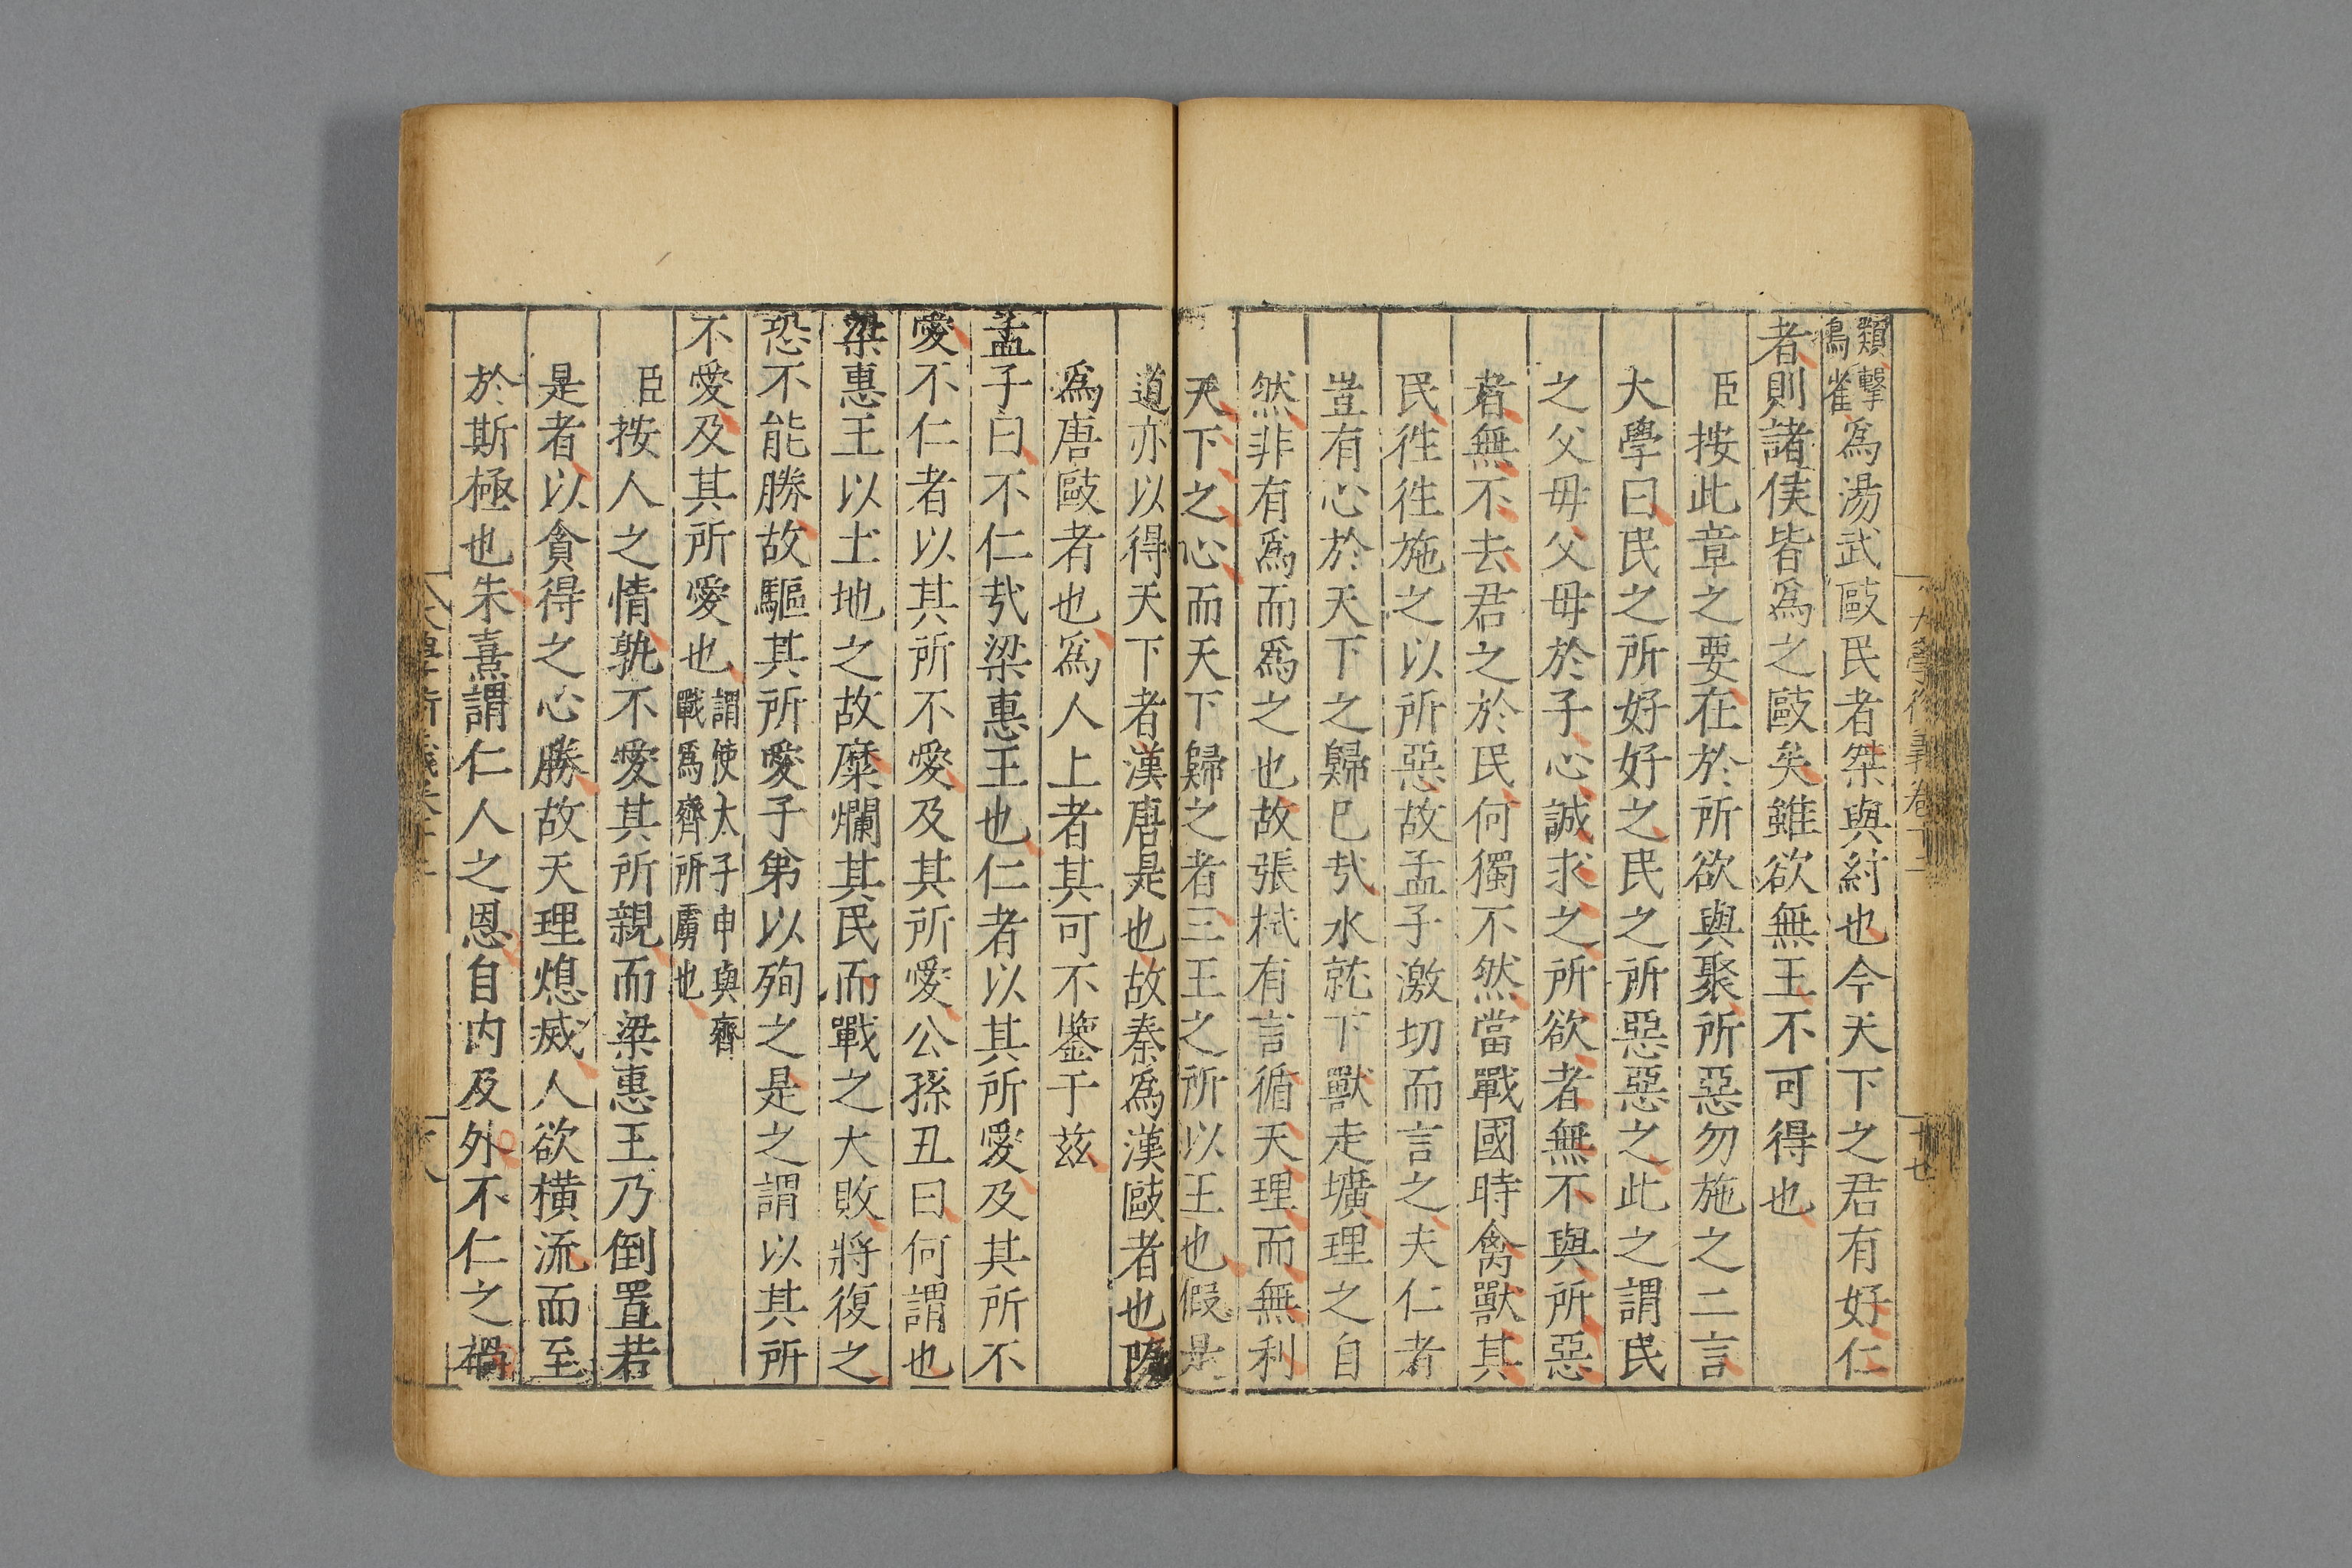 類擊
鳥雀爲湯武敺民者桀與紂也今天下之君有好仁
者則諸侯皆爲之敺矣雖欲無王不可得也
臣按此章之要在於所欲與聚所惡勿施之二言
大學曰民之所好好之民之所惡惡之此之謂民
之父母父母於子心誠求之所欲者無不與所惡
者無不去君之於民何獨不然當戰國時禽獸其
民徃徃施之以所惡故孟子激切而言之夫仁者
豈有心於天下之歸已㢤水就下獸走壙理之自
然非有爲而爲之也故張栻有言循天理而無利
天下之心而天下歸之者三王之所以王也假是
道亦以得天下者漢唐是也故秦爲漢敺者也隋
爲唐敺者也爲人上者其可不鑒于兹
孟子曰不仁㢤梁惠王也仁者以其所愛及其所不
愛不仁者以其所不愛及其所愛公孫丑曰何謂也
梁惠王以土地之故糜爛其民而戰之大敗將復之
恐不能勝故驅其所愛子弟以殉之是之謂以其所
不愛及其所愛也謂使太子申與齊
戰爲齊所虜也
臣按人之情孰不愛其所親而梁惠王乃倒置若
是者以貪得之心勝故天理熄滅人欲橫流而至
於斯極也朱熹謂仁人之恩自内及外不仁之禍